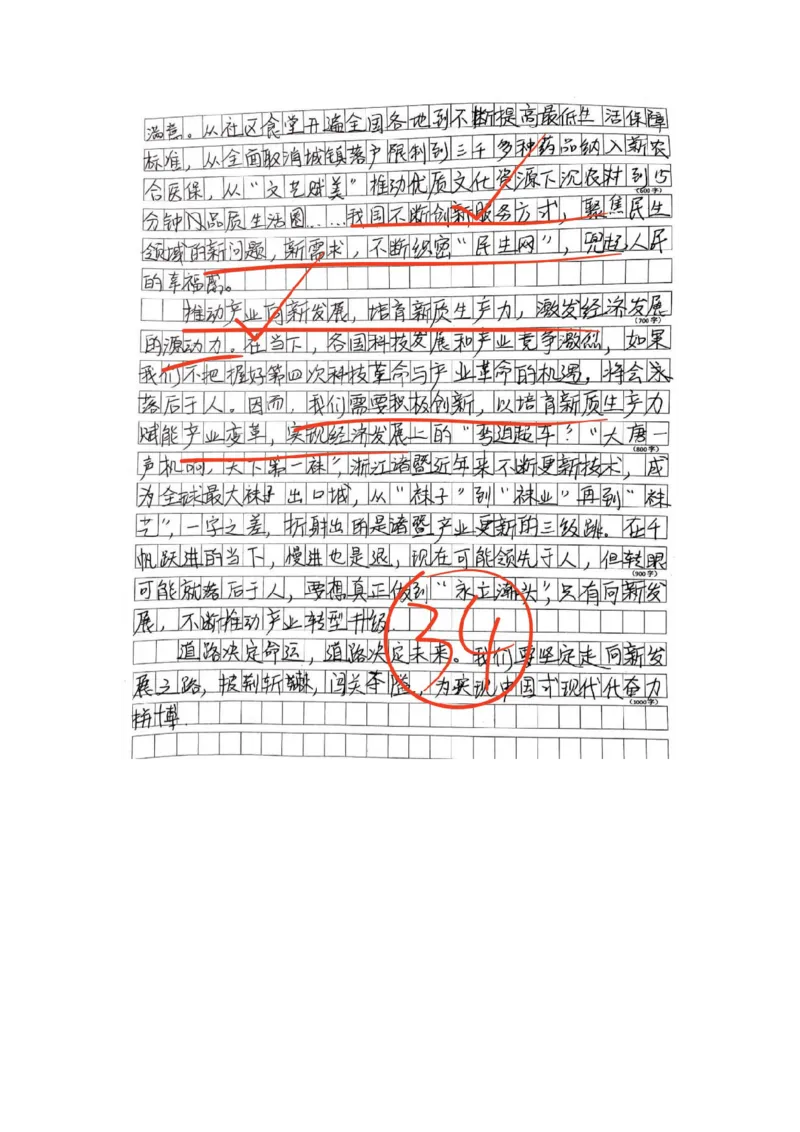 满意。从社区食堂开遍全国各地到不断提高最低生活保障
标准，从全面取消城镇落户限制到三千多种药品纳入新农
合医保，从“文艺赋美”推动优质文化资源下沉农村到15
(600字)
分钟品质生活圈……我国不断创新服务方式，聚焦民生
领域的新问题，新需求，不断织密“民生网”，兜起人民
的幸福感。
推动产业向新发展，培育新质生产力，激发经济发展
(700字)
的源动力。在当下，各国科技发展和产业竞争激烈，如果
我们不把握好第四次科技革命与产业革命的机遇，将会永
落后于人。因而，我们需要积极创新，以培育新质生产力
赋能产业变革，实现经济发展上的“弯道超车”。“大唐一
(800字)
声机响，天下第一袜”，浙江诸暨近年来不断更新技术，成
为全球最大袜子出口城，从“袜子”到“袜业”再到“袜
艺”，一字之差，折射出的是诸暨产业更新的三级跳。在千
帆跃进的当下，慢进也是退，现在可能领先于人，但转眼
(900字)
可能就落后于人，要想真正做到“永立潮头”，只有向新发
展，不断推动产业转型升级.
34
道路决定命运，道路决定未来。我们要坚定走向新发
展之路，披荆斩棘，闯关夺隘，为实现中国式现代化奋力
(1000字)
拼博.